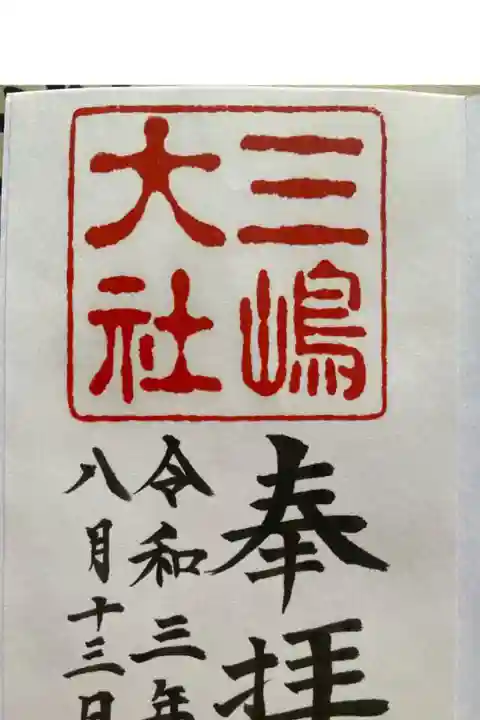 三嶋
大社
奉拝
令和三年
八月十三日